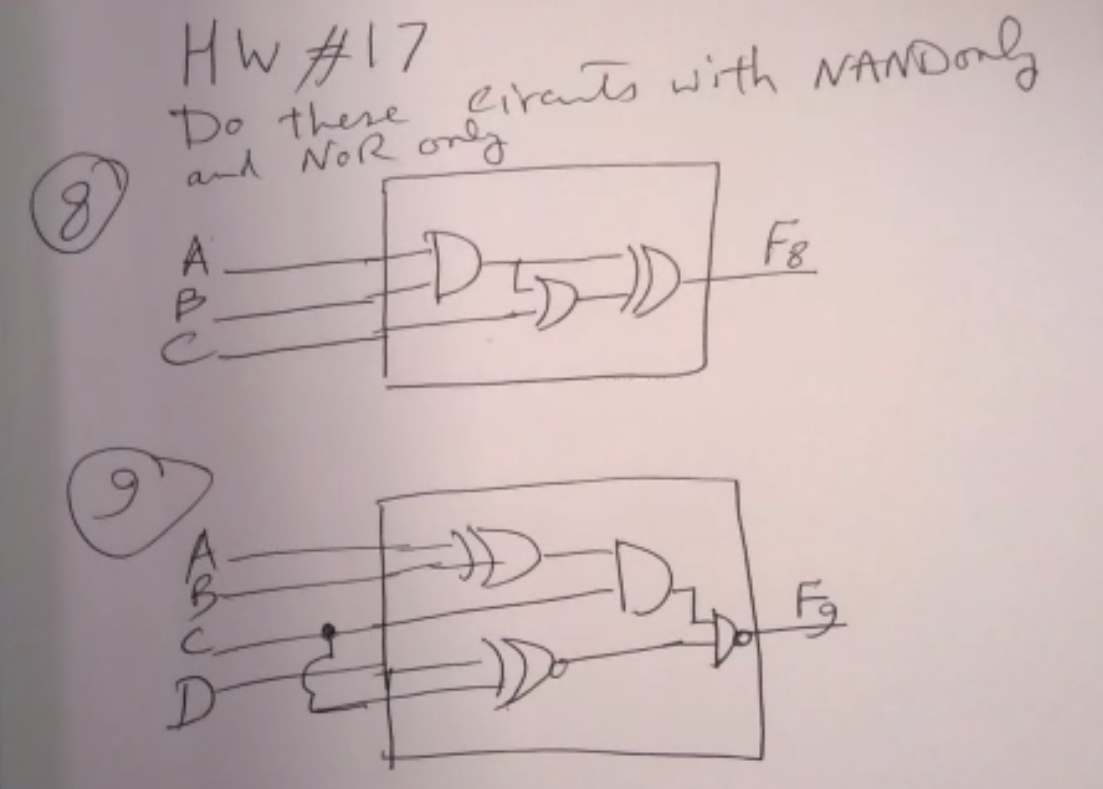 HW #17
Do these circuits with NAND only
and NOR only
8
A
B
C
F8
9
A
B
C
D
F9